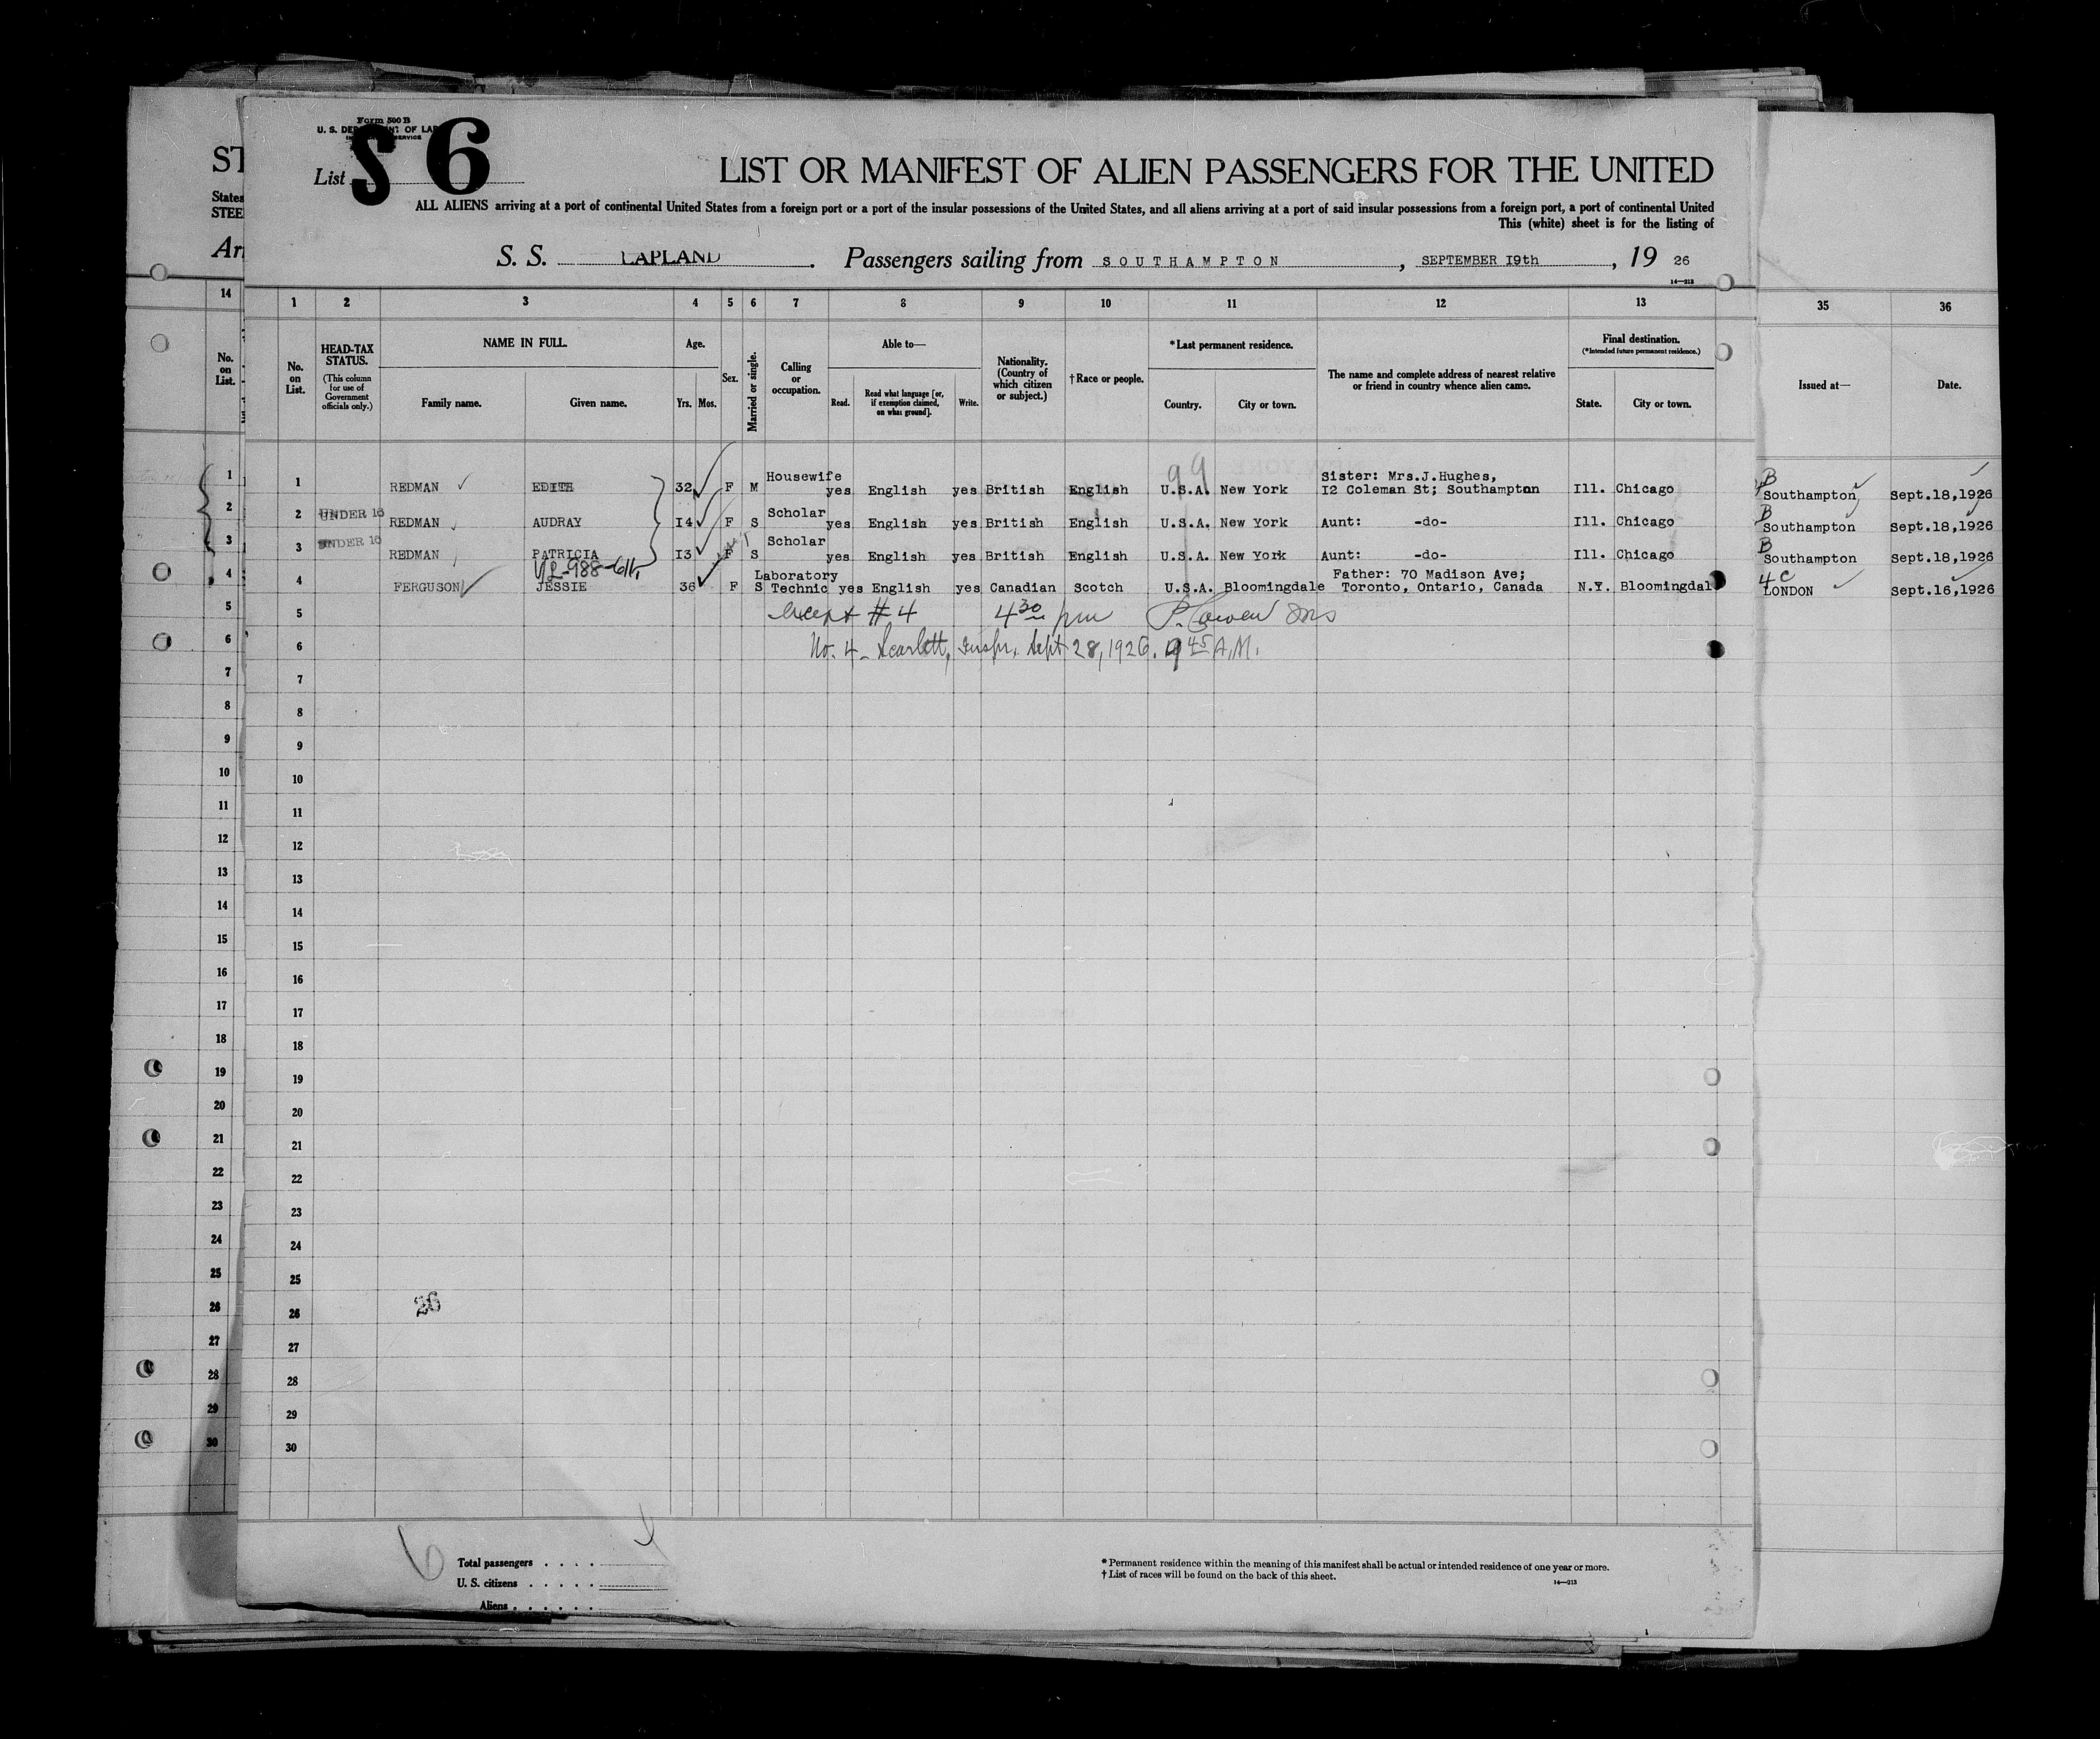 Form 500 B
U. S. DEPARTMENT OF LAB
List S 6
LIST OR MANIFEST OF ALIEN PASSENGERS FOR THE UNITED
ALL ALIENS arriving at a port of continental United States from a foreign port or a port of the insular possessions of the United States, and all aliens arriving at a port of said insular possessions from a foreign port, a port of continental United
This (white) sheet is for the listing of
S. S. LAPLAND. Passengers sailing from SOUTHAMPTON, SEPTEMBER I9th, 19 26
14—213
ST
States
STEE
Arr
14
No. on List.
1 2 3 4 5 6 7 8 9 10 11 12 13 35 36
No. on List.
HEAD-TAX STATUS.
(This column for use of Government officials only.)
NAME IN FULL.
Family name. Given name.
Age.
Yrs. Mos.
Sex.
Married or single.
Calling or occupation.
Able to—
Read. Read what language [or, if exemption claimed, on what ground]. Write.
Nationality. (Country of which citizen or subject.)
†Race or people.
*Last permanent residence.
Country. City or town.
The name and complete address of nearest relative or friend in country whence alien came.
Final destination.
(*Intended future permanent residence.)
State. City or town.
Issued at— Date.
99
1 1 REDMAN EDITH 32 F M Housewife yes English yes British English U.S.A. New York Sister: Mrs.J.Hughes, I2 Coleman St; Southampton Ill. Chicago B Southampton Sept.18,1926
2 2 UNDER 16 REDMAN AUDRAY I4 F S Scholar yes English yes British English U.S.A. New York Aunt: -do- Ill. Chicago B Southampton Sept.18,1926
3 3 UNDER 16 REDMAN PATRICIA I3 F S Scholar yes English yes British English U.S.A. New York Aunt: -do- Ill. Chicago B Southampton Sept.18,1926
4 4 FERGUSON JESSIE 36 F S Laboratory Technic yes English yes Canadian Scotch U.S.A. Bloomingdale Father: 70 Madison Ave; Toronto, Ontario, Canada N.Y. Bloomingdal 4c LONDON Sept.16,1926
5 5 except #4 4 30 pm
6 6 No. 4 - Scarlett, Inspr. Sept 28, 1926. 9 45 A.M.
7 7
8 8
9 9
10 10
11 11
12 12
13 13
14 14
15 15
16 16
17 17
18 18
19 19
20 20
21 21
22 22
23 23
24 24
25 25
26 26 26
27 27
28 28
29 29
30 30
6
Total passengers . . . .
U. S. citizens . . . . .
Aliens . . . . . .
* Permanent residence within the meaning of this manifest shall be actual or intended residence of one year or more.
† List of races will be found on the back of this sheet.
14—213